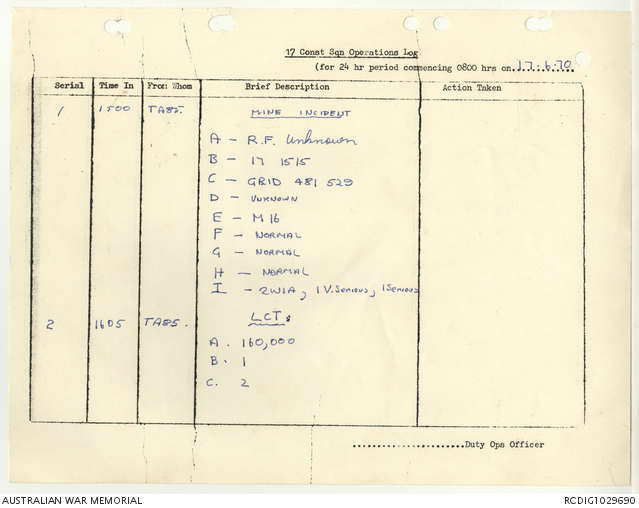 17 Const Sqn Operations Log
(for 24 hr period commencing 0800 hrs on 17.6.70
Serial Time In From: Whom Brief Description Action Taken
1 1500 TA85. MINE INCIDENT
A - R.F. Unknown
B - 17 1515
C - GRID 481 529
D - UNKNOWN
E - M16
F - NORMAL
G - NORMAL
H - NORMAL
I - 2WIA, 1 V. Serious, 1 Serious
2 1605 TA85. LCT.
A. 160,000
B. 1
C. 2
........................Duty Ops Officer
AUSTRALIAN WAR MEMORIAL
RCDIG1029690